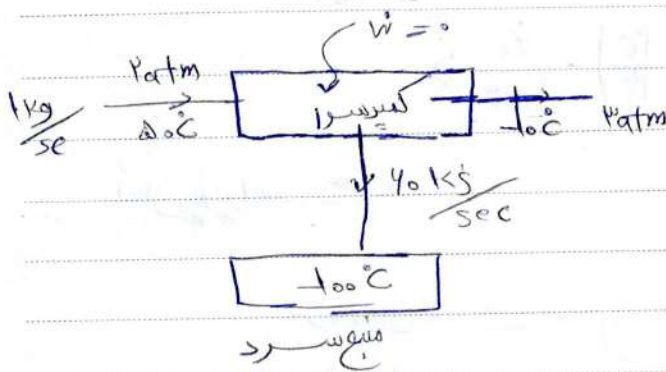 ẇ = ۰
۲atm
۱kg/se
۵۰°C
کمپرسور
-۱۰°C ۳atm
۶۰ kj/sec
-۱۰۰°C
منبع سرد